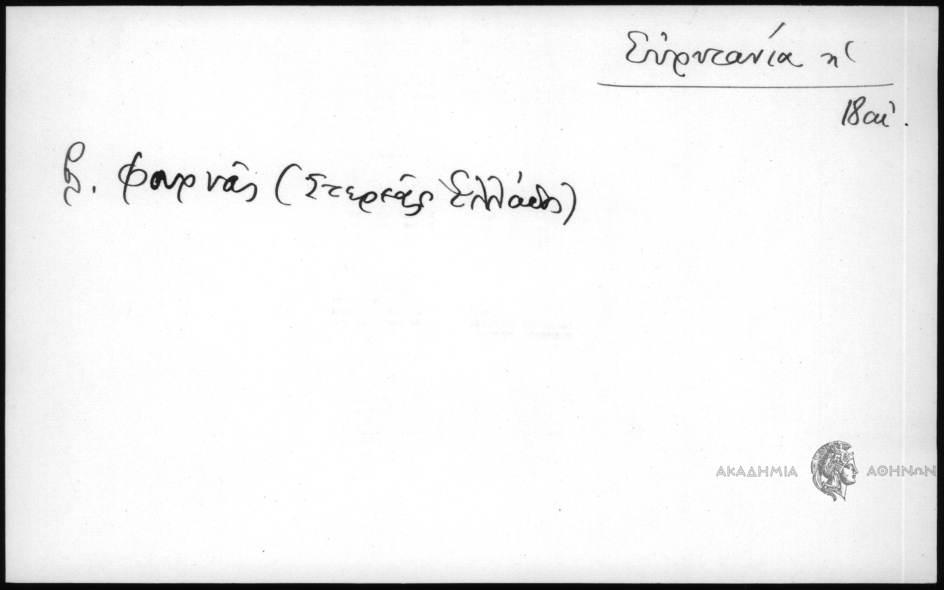 Εὐρυτανία η'
18 αἰ.
β. Φουρνᾶς (Στερεᾶς Ἑλλάδος)
ΑΚΑΔΗΜΙΑ ΑΘΗΝΩΝ